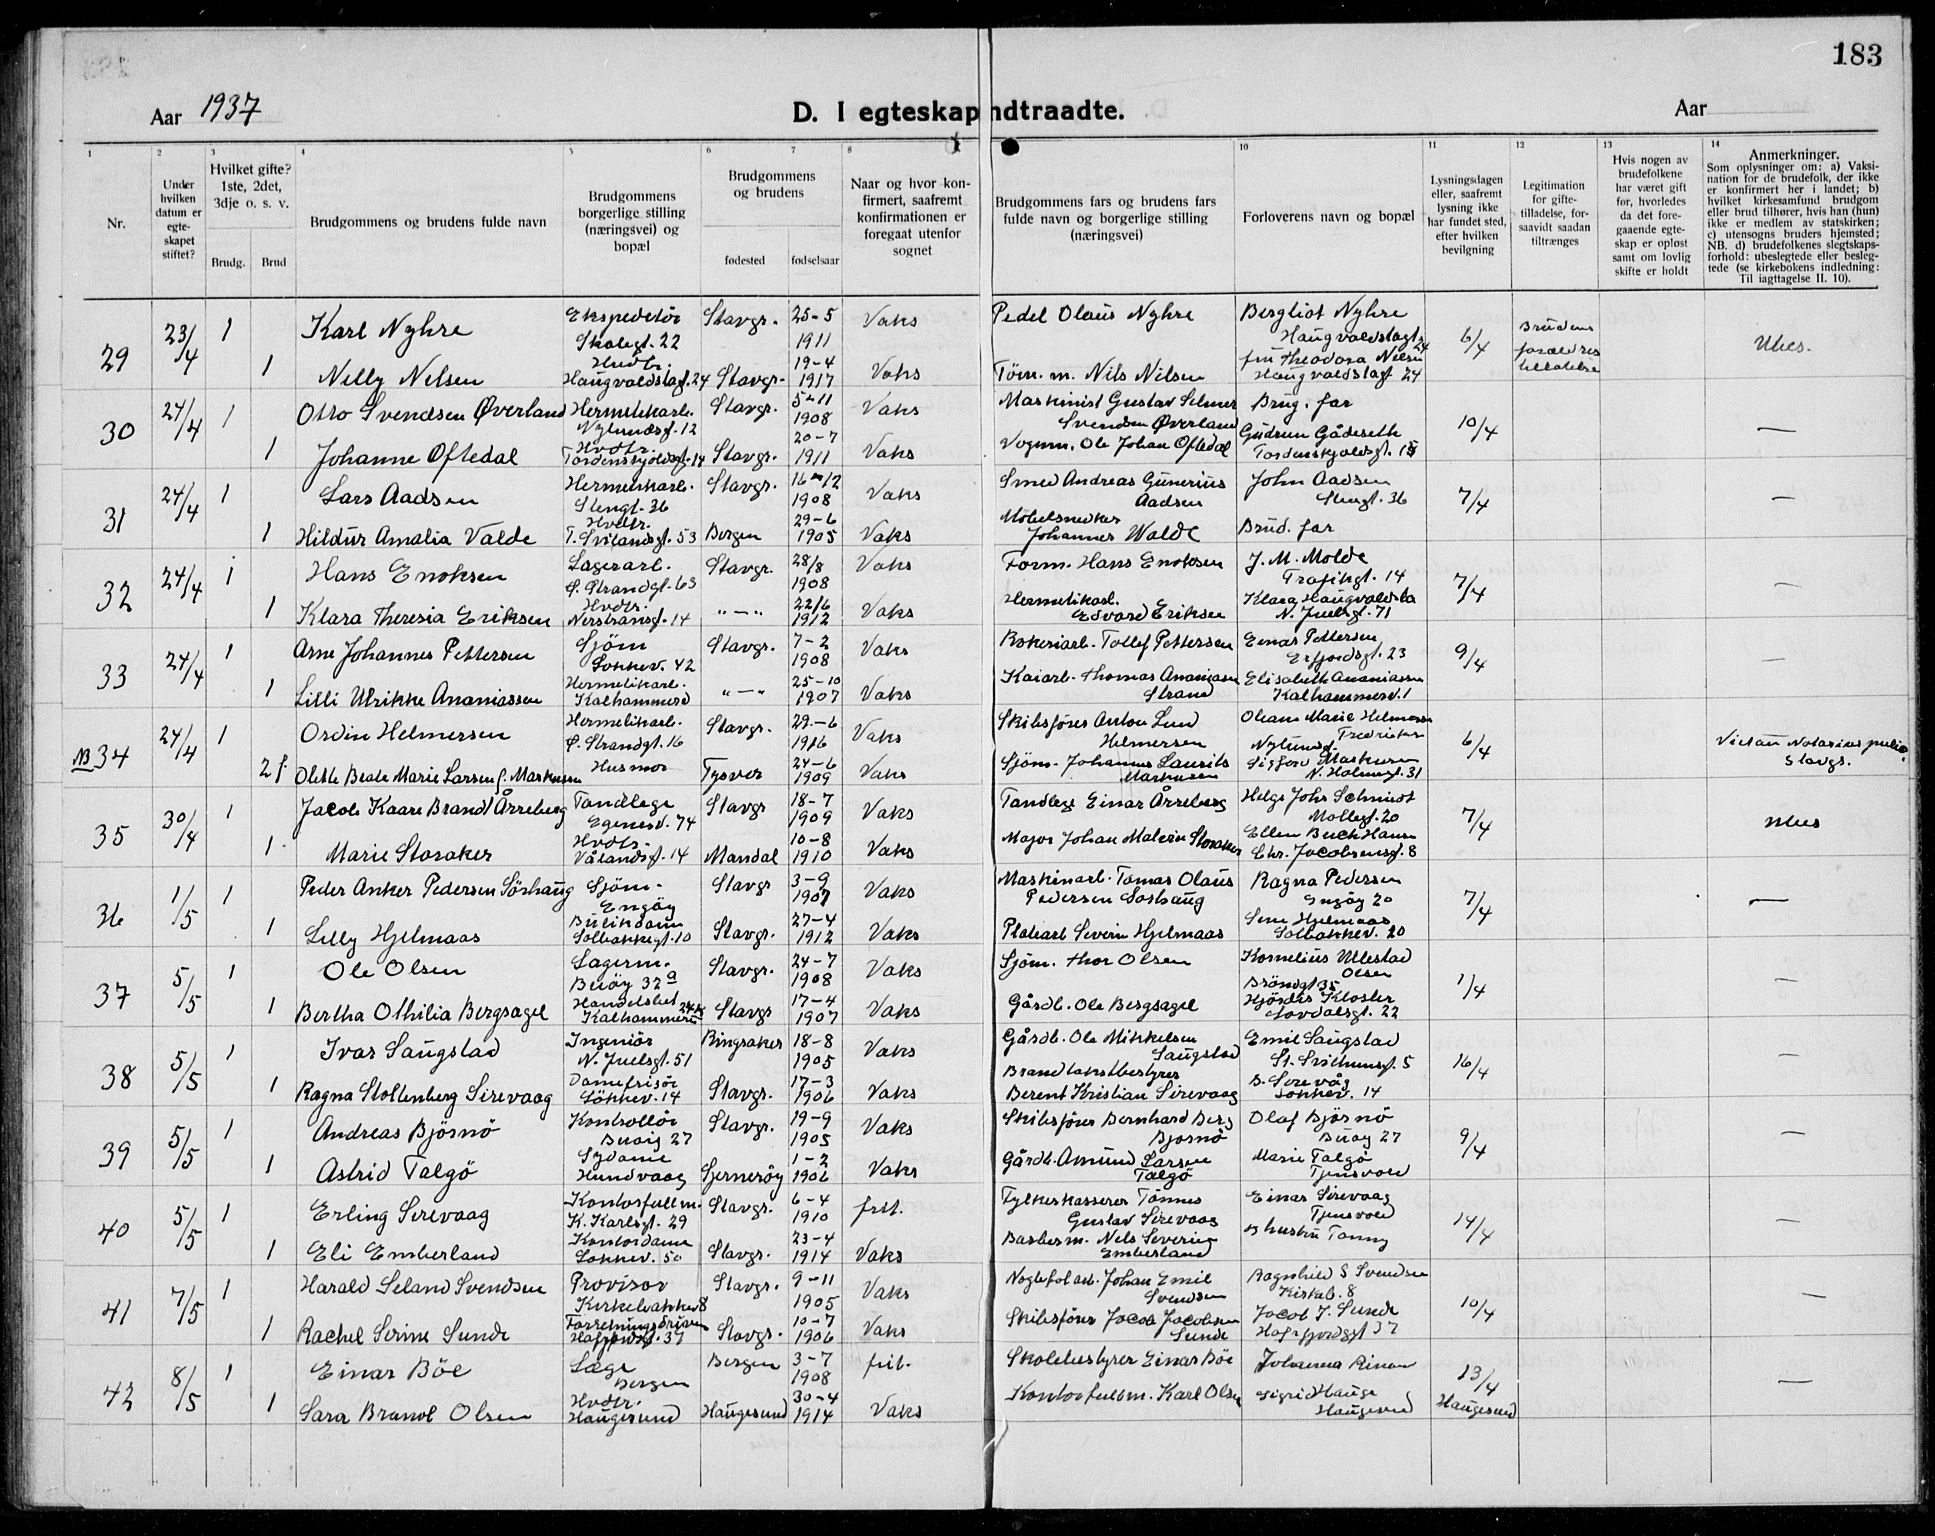 183
Aar 1937
D. I egteskap indtraadte.
Aar
1 2 3 4 5 6 7 8 10 11 12 13 14
Nr.
Under hvilken datum er egte-skapet stiftet?
Hvilket gifte? 1ste, 2det, 3dje o. s. v.
Brudg. Brud
Brudgommens og brudens fulde navn
Brudgommens borgerlige stilling (næringsvei) og bopæl
Brudgommens og brudens
fødested fødselsaar
Naar og hvor kon-firmert, saafremt konfirmationen er foregaat utenfor sognet
Brudgommens fars og brudens fars fulde navn og borgerlige stilling (næringsvei)
Forloverens navn og bopæl
Lysningsdagen eller, saafremt lysning ikke har fundet sted, efter hvilken bevilgning
Legitimation for gifte-tilladelse, for-saavidt saadan tiltrænges
Hvis nogen av brudefolkene har været gift før, hvorledes da det fore-gaaende egte-skap er opløst samt om lovlig skifte er holdt
Anmerkninger.
Som oplysninger om: a) Vaksi-nation for de brudefolk, der ikke er konfirmert her i landet; b) hvilket kirkesamfund brudgom eller brud tilhører, hvis han (hun) ikke er medlem av statskirken; c) utensogns bruders hjemsted; NB. d) brudefolkenes slegtskaps-forhold: ubeslegtede eller besleg-tede (se kirkebokens indledning: Til iagttagelse II. 10).
29 23/4 1 Karl Nyhre Ekspeditör Skolegt. 22 Stavgr. 25-5 1911 Vaks Pedel Olaus Nyhre Bergliot Nyhre Haugvaldstagt. 24 6/4 Brudens forældres tilladelse Ubes.
1 Nelly Nilsen Husb. Haugvaldstagt. 24 Stavgr. 19-4 1917 Vaks Töm. m. Nils Nilsen fru Theodora Nilsen Haugvaldstagt 24
30 24/4 1 Otto Svendsen Øverland Hermetikarb. Nylundsgt. 12 Stavgr. 5-11 1908 Vaks Maskinist Gustav Selmer Svendsen Øverland Brug. far 10/4 —
1 Johanne Oftedal Hvdtr. Tordenskjoldsgt. 14 Stavgr. 20-7 1911 Vaks Vognm. Ole Johan Oftedal Gudrun Gådeseth Tordenskjoldsgt. 15
31 24/4 1 Lars Aadsen Hermetikarb. Stengt. 36 Stavgr. 16-12 1908 Vaks Smed Andreas Gunerius Aadsen John Aadsen Stengt. 36 7/4 —
1 Hildur Amalia Valde Hvdtr. T. Svilandsgt. 53 Bergen 29-6 1905 Vaks Möbelsnedker Johannes Walde Brud. far
32 24/4 1 Hans Enoksen Lagerarb. Ø. Strandgt. 63 Stavgr. 28/8 1908 Vaks Form. Hans Enoksen J. M. Molde Trafikgt. 14 7/4 —
1 Klara Theresia Eriksen Hvdtr. Nerstransgt. 14 "—" 22/6 1912 Vaks Hermetikarb. Edvard Eriksen Klara Haugvaldsta N. Juelsgt. 71
33 24/4 1 Arne Johannes Pettersen Sjöm Lokkev. 42 Stavgr. 7-2 1908 Vaks Bokeriarb. Tollef Pettersen Einar Pettersen Erfjordsgt. 23 9/4 —
1 Lilli Ulrikke Ananiassen Hermetikarb. Kalhammerv "—" 25-10 1907 Vaks Kaiarb. Thomas Ananiasen Strand Elisabeth Ananiassen Kalhammerv. 1
NB 34 24/4 1 Ordin Helmersen Hermetikarb. Ø. Strandgt. 16 Stavgr. 29-6 1916 Vaks Skibsförer Anton Lund Helmersen Oleam Marie Helmersen Nylunsgt. 6/4 Notarius public Stavgr.
2 f. Olette Beate Marie Larsen f. Markusen Husmor Tysver 24-6 1909 Vaks Sjöm. Johannes Laurits Markusen Sigfred Markusen N. Holmegt. 31
35 30/4 1 Jacob Kaare Brandt Årreberg Tandlege Egenesv. 74 Stavgr 18-7 1909 Vaks Tandlege Einar Årreberg Helge Johs Schmidt Mollegt. 20 7/4 Ubes
1 Marie Storaker Hvdtr. Vålandsgt. 14 Mandal 10-8 1910 Vaks Major Johan Malvin Storaker Ellen Buch Hansen Chr. Jacobsensgt. 8
36 1/5 1 Peder Anker Pedersen Sörhaug Sjöm. Engöy Stavgr 3-9 1907 Vaks Maskinarb. Tomas Olaus Pedersen Sörhaug Ragna Pedersen Engöy 20 7/4 —
1 Lilly Hjelmaas Butikdame Solbakkegt. 10 Stavgr. 27-4 1912 Vaks Platearb Severin Hjelmaas Sem Hjelmaas Solbakkev. 20
37 5/5 1 Ole Olsen Lagerm. Buöy 32a Stavgr. 24-7 1908 Vaks Sjöm. Thor Olsen Kornelius Ullestad Olsen Bröndgt 35 1/4 —
1 Bertha Othilia Bergsagel Handelsbet Kalhammerv 24 Stavgr 17-4 1907 Vaks Gårdb. Ole Bergsagel Hjördis Kloster Lovdalsgt. 22
38 5/5 1 Ivar Saugstad Ingeniör N. Juelsgt. 51 Ringsaker 18-8 1905 Vaks Gårdb. Ole Mikkelsen Saugstad Emil Saugstad St. Svithunsgt. 5 16/4 —
1 Ragna Stoltenberg Sirevaag Damefrisör Lökkev. 14 Stavgr. 17-3 1906 Vaks Brandtakstbestyrer Berent Kristian Sirevaag B. Sirevåg Lokkev. 14
39 5/5 1 Andreas Bjösnö Kontrollör Buöy 27 Stavgr. 19-9 1905 Vaks Skibsförer Bernhard Berg Bjosnö Olaf Bjösnö Buöy 27 9/4 —
1 Astrid Talgö Sydame Hundvaag Sjernerøy 1-2 1906 Vaks Gårdb. Amund Larsen Talgö Marie Talgö Tjensvold
40 5/5 1 Erling Sirevaag Kontorfullm. K. Karlsgt. 29 Stavgr. 6-4 1910 frit. Fylkeskasserer Tönnes Gustav Sirevaag Einar Sirevaag Tjensvold 14/4 —
1 Eli Emberland Kontordame Lokkev. 50 Stavgr. 23-4 1914 Vaks Barberm. Nils Severin Emberland og hustru Tanny
41 7/5 1 Harald Seland Svendsen Provisor Kirkebakken 8 Stavgr. 9-11 1905 Vaks Johan Emil Svendsen Ragnhild S Svendsen Kirkeb. 8 10/4 —
1 Rachel Serine Sunde Forretningsdriven Hafrsfjordsgt. 37 Stavgr. 10-7 1906 Vaks Skibsförer Jacob Jacobsen Sunde Jacob J. Sunde Hafrsfjordgt 37
42 8/5 1 Einar Böe Læge Bergen Bergen 3-7 1908 frit. Skolebestyrer Einar Böe Johanna 13/4 Haugesund —
1 Sara Brandt Olsen Hvdtr. Haugesund Haugesund 30-4 1914 Vaks Kontorfullm. Karl Olsen Sigrid Hauge Haugesund